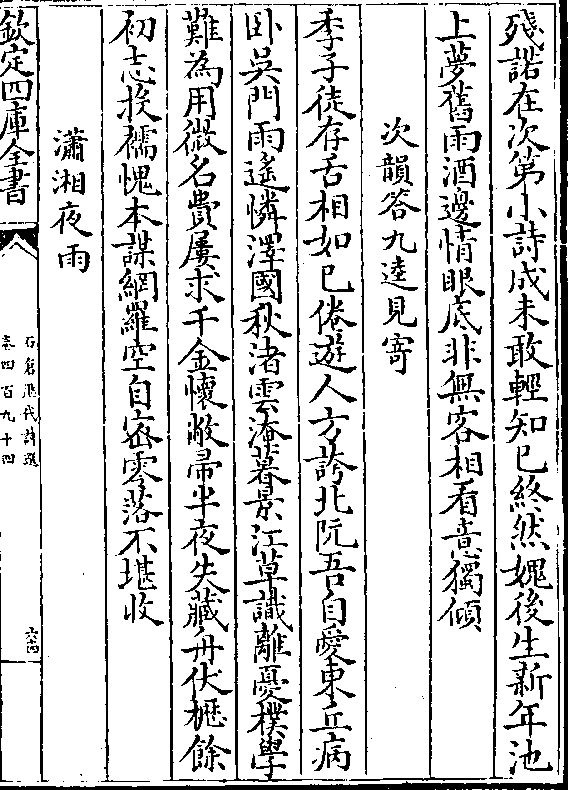 殘諾在次第小詩成未敢輕知已終然媿後生新年池
上夢舊雨酒邊情眼底非無客相看意獨傾
次韻答九逵見寄
季子徒存舌相如已倦遊人方誇北阮吾自愛東丘病
卧吳門雨遙憐澤國秋渚雲淹暮景江草識離憂樸學
難為用微名費屢求千金懷敝帚半夜失藏舟伏櫪餘
初志投襦愧本謀網羅空自密零落不堪收
瀟湘夜雨
欽定四庫全書
石倉歷代詩選
卷四百九十四
六十四